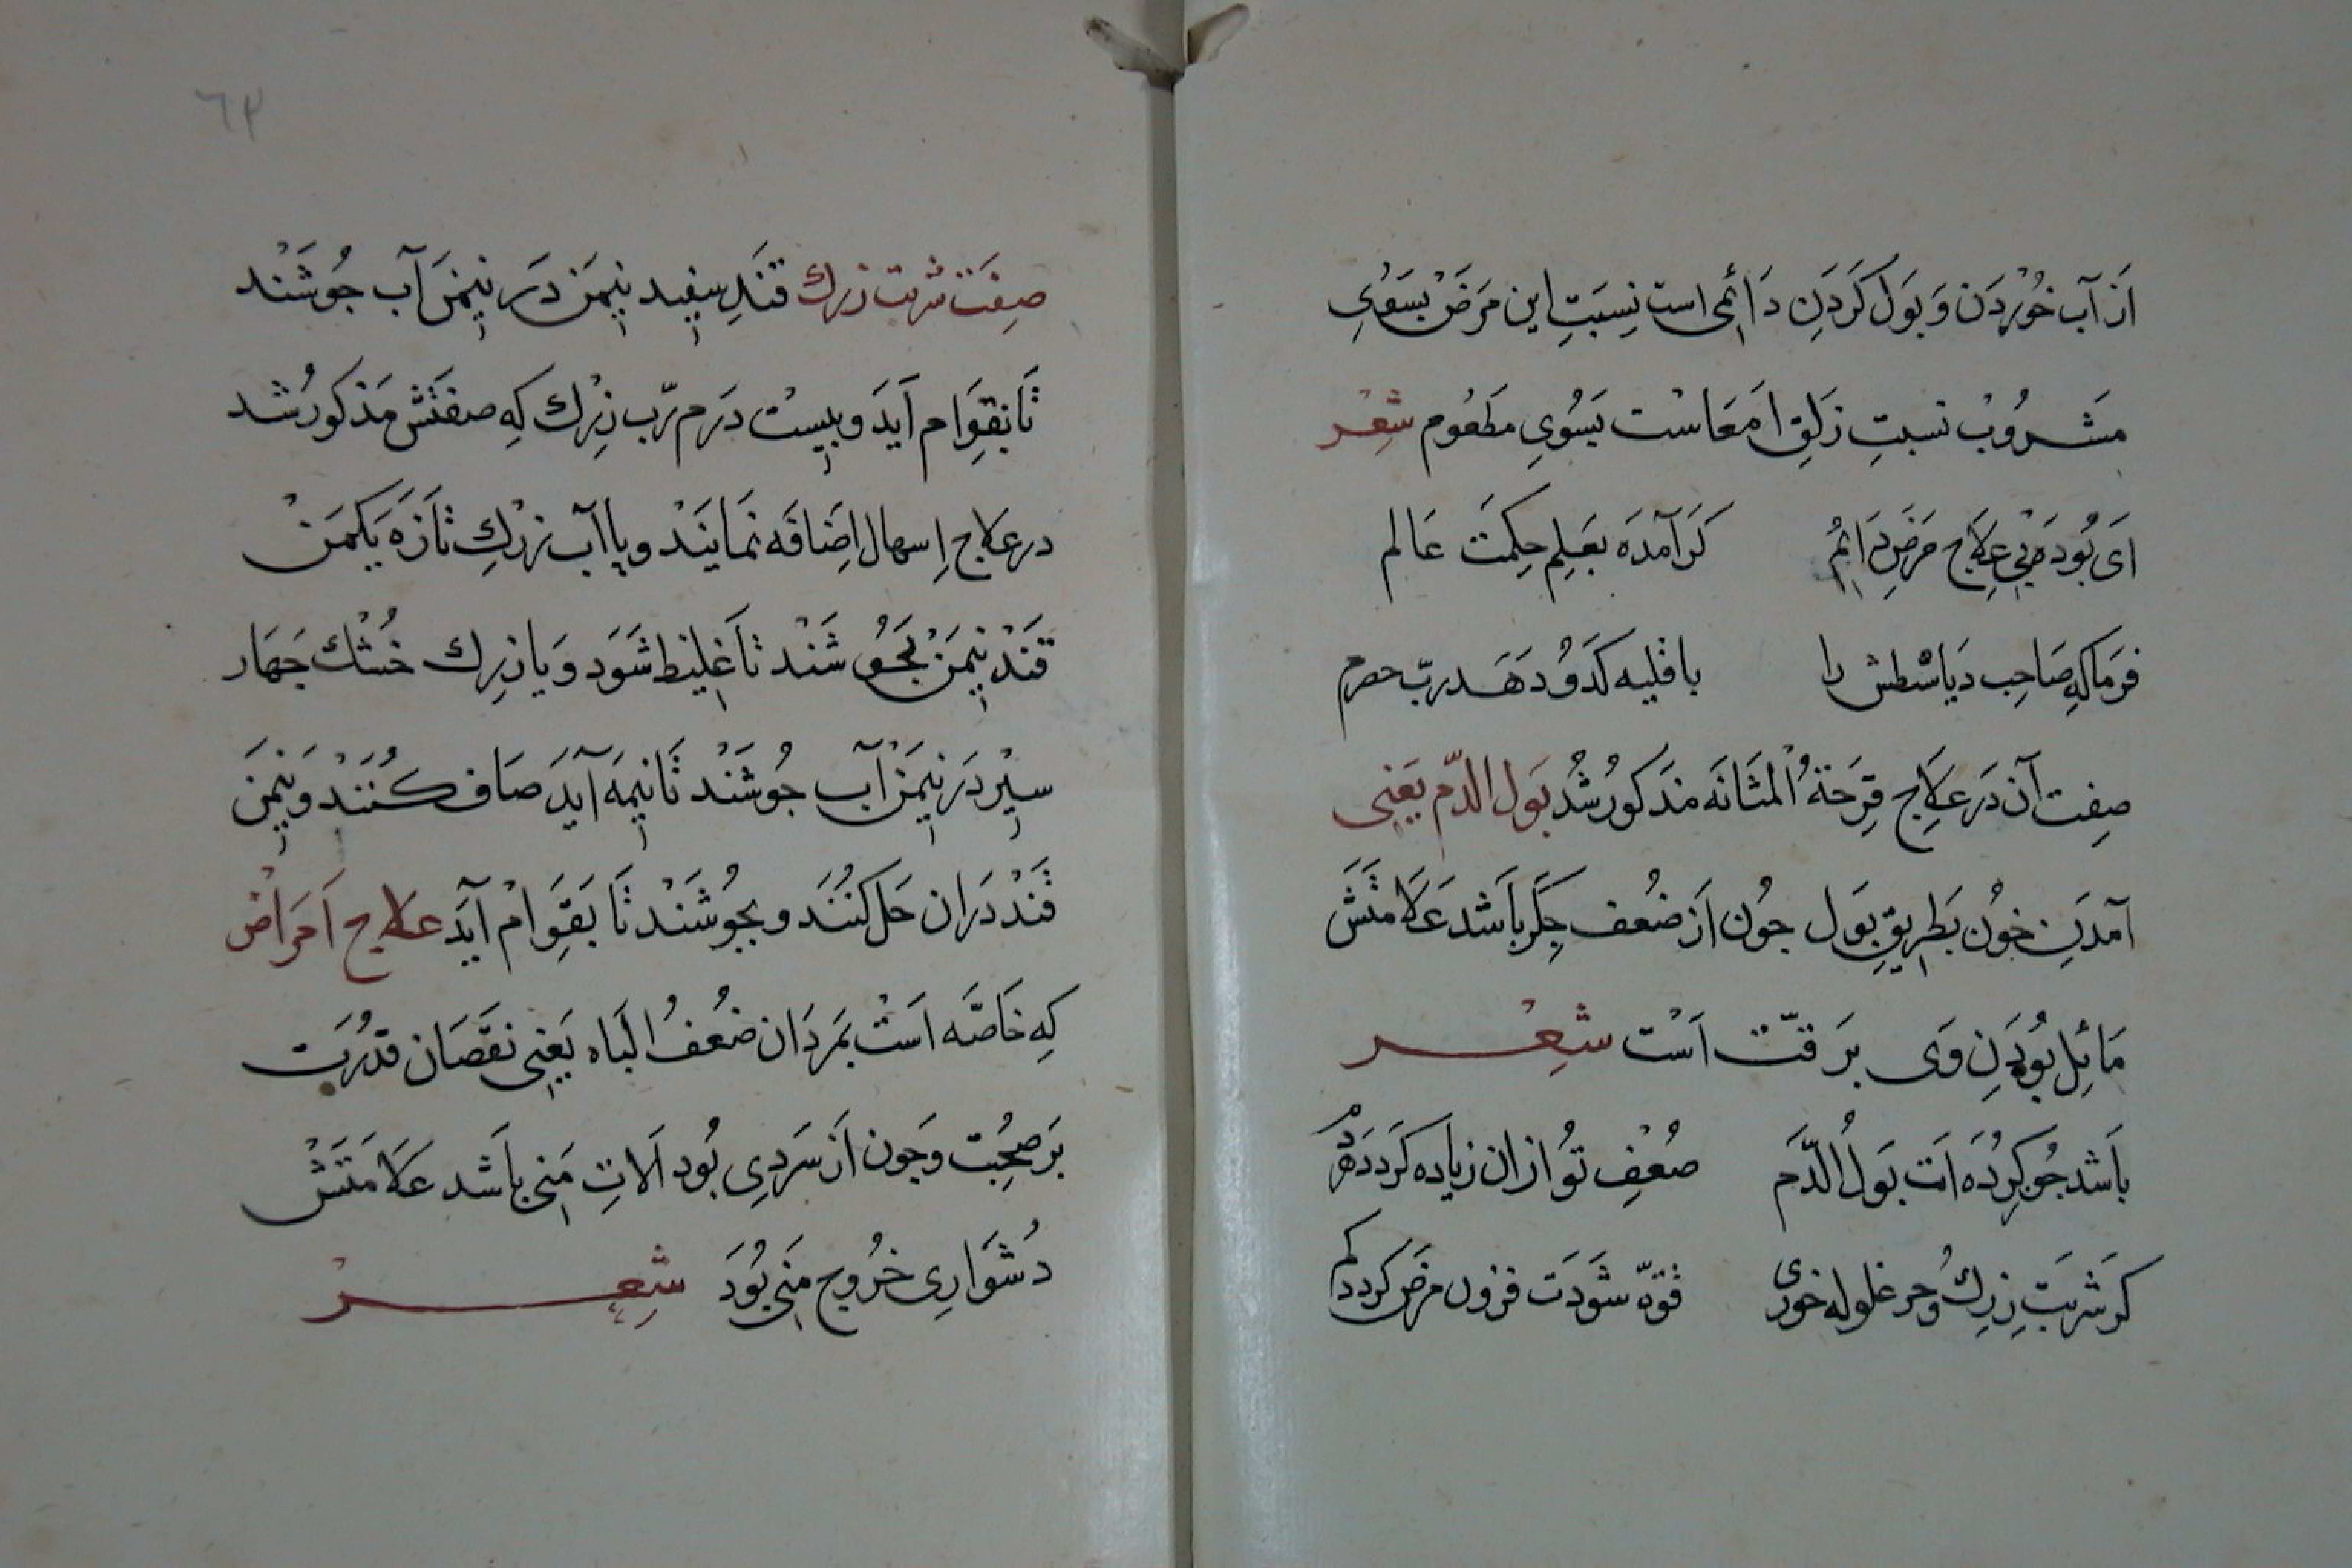 از آب خوردن و بول کردن دائمی است نسبت این مرض بسوی
مشروب نسبت زلق امعاست بسوی مطعوم شعر
ای بوده پی علاج مرض دائم
کرآمده بعلم حکمت عالم
فرما که صاحب دیاسطش را
با قلیه کدو دهد رب حصرم
صفت آن در علاج قرحة المثانه مذکور شد بول الدم یعنی
آمدن خون بطریق بول جون از ضعف جگر باشد علامتش
مائل بودن وی برقت است شعر
باشد جو کرده ات بول الدم
ضعف تو ازان زیاده کردد هردم
کر شربت زرك و حرغلوله خوری
قوه شودت فزون مرض کردد کم
٦٣
صفت شربت زرك قند سفید نیمن در نیمن آب جوشند
تا بقوام آید و بیست درم رب زرك که صفتش مذکور شد
در علاج اسهال اضافه نمایند و یا آب زرك تازه یکمن
قند نیمن بجوشند تا غلیظ شود و یا زرك خشك جهار
سیر در نیمن آب جوشند تا نیمه آید صاف کنند و نیمن
قند دران حل کنند و بجوشند تا بقوام آید علاج امراض
که خاصه است بمردان ضعف الباه یعنی نقصان قدرت
بر صحبت و جون از سردی بود الات منی باشد علامتش
دشواری خروج منی بود شعر